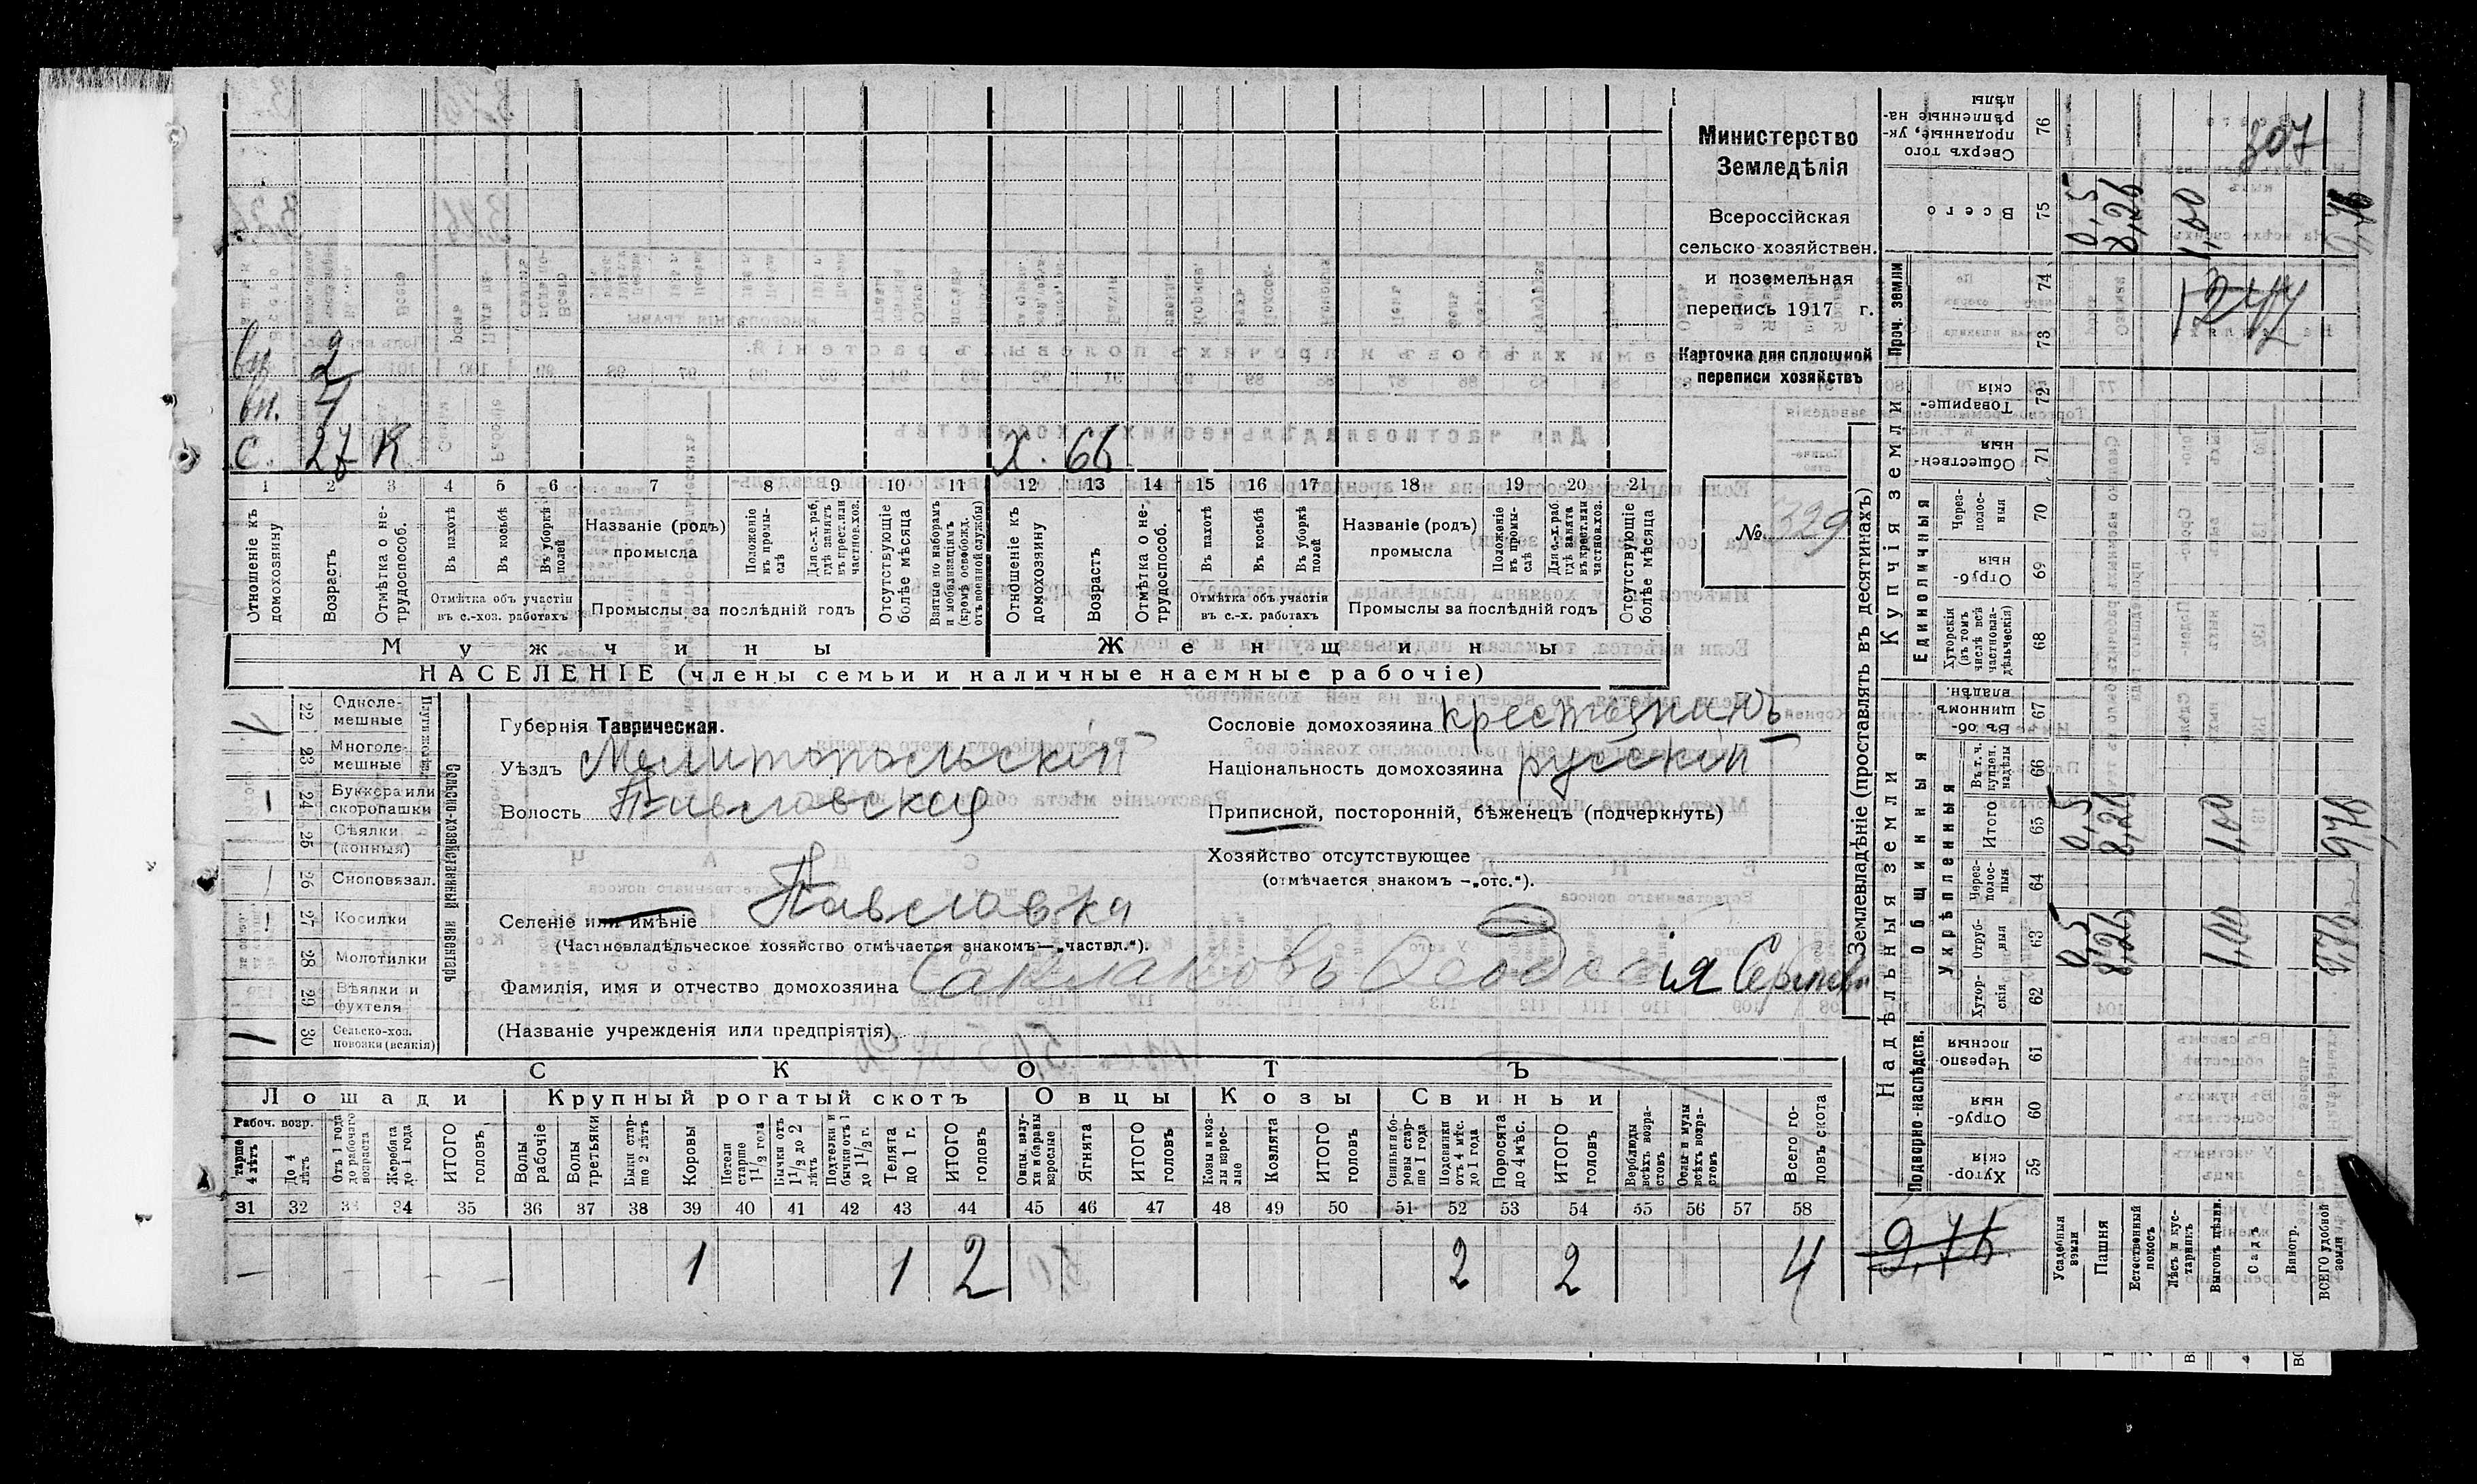 Министерство
Земледѣлія
Всероссійская
сельско-хозяйствен.
и поземельная
перепись 1917 г.
Карточка для сплошной
переписи хозяйствъ
№ 329
вн. 2
вн. 4
с. 27 К
Х. 66
1 2 3 4 5 6 7 8 9 10 11 12 13 14 15 16 17 18 19 20 21
Отношеніе къ домохозяину
Возрастъ
Отмѣтка о не-трудоспособ.
Въ пахотѣ
Въ косьбѣ
Въ уборкѣ полей
Отмѣтка объ участіи въ с.-хоз. работахъ
Названіе (родъ) промысла
Положеніе въ промы-слѣ
Для с.-х. раб. гдѣ занятъ въ крест. или частнов. хоз.
Промыслы за послѣдній годъ
Отсутствующіе болѣе мѣсяца
Взятые по наборамъ и мобилизаціямъ (кромѣ освобожд. отъ военной службы)
Отношеніе къ домохозяину
Возрастъ
Отмѣтка о не-трудоспособ.
Въ пахотѣ
Въ косьбѣ
Въ уборкѣ полей
Отмѣтка объ участіи въ с.-х. работахъ
Названіе (родъ) промысла
Положеніе въ промы-слѣ
Для с.-х. раб. гдѣ занята въ крест. или частнов. хоз.
Промыслы за послѣдній годъ
Отсутствующіе болѣе мѣсяца
Мужчины
Женщины
НАСЕЛЕНІЕ (члены семьи и наличные наемные рабочіе)
Сельско-хозяйственный инвентарь
22 Одноле-мешные 1
23 Многоле-мешные
24 Буккера или скоропашки 1
25 Сѣялки (конныя)
26 Сноповязал. 1
27 Косилки 1
28 Молотилки
29 Вѣялки и фухтеля
30 Сельско-хоз. повозки (всякія) 1
Губернія Таврическая.
Уѣздъ Мелитопольскій
Волость Павловская
Селеніе или имѣніе Павловка
(Частновладѣльческое хозяйство отмѣчается знакомъ—„частвл.“).
Фамилія, имя и отчество домохозяина Саклаковъ Ѳеодосія
(Названіе учрежденія или предпріятія)
Сословіе домохозяина крестьянинъ
Національность домохозяина русскій
Приписной, посторонній, бѣженецъ (подчеркнуть)
Хозяйство отсутствующее
(отмѣчается знакомъ —„отс.“).
СКОТЪ
Лошади
Крупный рогатый скотъ
Овцы
Козы
Свиньи
Рабоч. возр.
До 4 лѣтъ
Отъ 1 года до рабочаго возраста
Жеребята до 1 года
ИТОГО головъ
Волы рабочіе
Волы третьяки
Быки стар-ше 2 лѣтъ
Коровы
Нетели старше 1 1/2 года
Бычки отъ 1 1/2 до 2 лѣтъ
Подтелки и бычки отъ 1 до 1 1/2 г.
Телята до 1 г.
ИТОГО головъ
Овцы, валу-хи и бараны взрослые
Ягнята
ИТОГО головъ
Козы и коз-лы взрос-лые
Козлята
ИТОГО головъ
Свиньи и бо-ровы стар-ше 1 года
Подсвинки отъ 4 мѣс. до 1 года
Поросята до 4 мѣс.
ИТОГО головъ
Верблюды всѣхъ возра-стовъ
Ослы и мулы всѣхъ возра-стовъ
Всего го-ловъ скота
31 32 33 34 35 36 37 38 39 40 41 42 43 44 45 46 47 48 49 50 51 52 53 54 55 56 57 58
— — — — 1 1 2 2 2 4
Землевладѣніе (проставлять въ десятинахъ)
Проч. земли
Купчія земли
Единоличныя
Надѣльныя земли
Общинныя
Укрѣпленныя
Подворно-наслѣдств.
Сверхъ того проданные, ук-рѣпленные на-дѣлы 76
Всего 75 0,5 8,26 1,00
74
73
Товарище-скія 72
Обществен-ныя 71
Через-полос-ныя 70
Отруб-ныя 69
Хуторскія (въ томъ числѣ всѣ частновла-дѣльческія) 68
Въ об-щинномъ владѣн. 67
Въ т. ч. куплен. надѣлы 66
Итого 65 0,5 8,26 1,00 9,76
Через-полос-ныя 64
Отруб-ныя 63 0,5 8,26 1,00 9,76
Хутор-скія 62
Черезпо-лосныя 61
Отруб-ныя 60
Хутор-скія 59
807
1247
9,76
Усадебныя земли
Пашня
Естественный покосъ
Лѣсъ и кус-тарникъ
Выгонъ цѣлин.
Садъ
Виногр.
ВСЕГО удобной земли